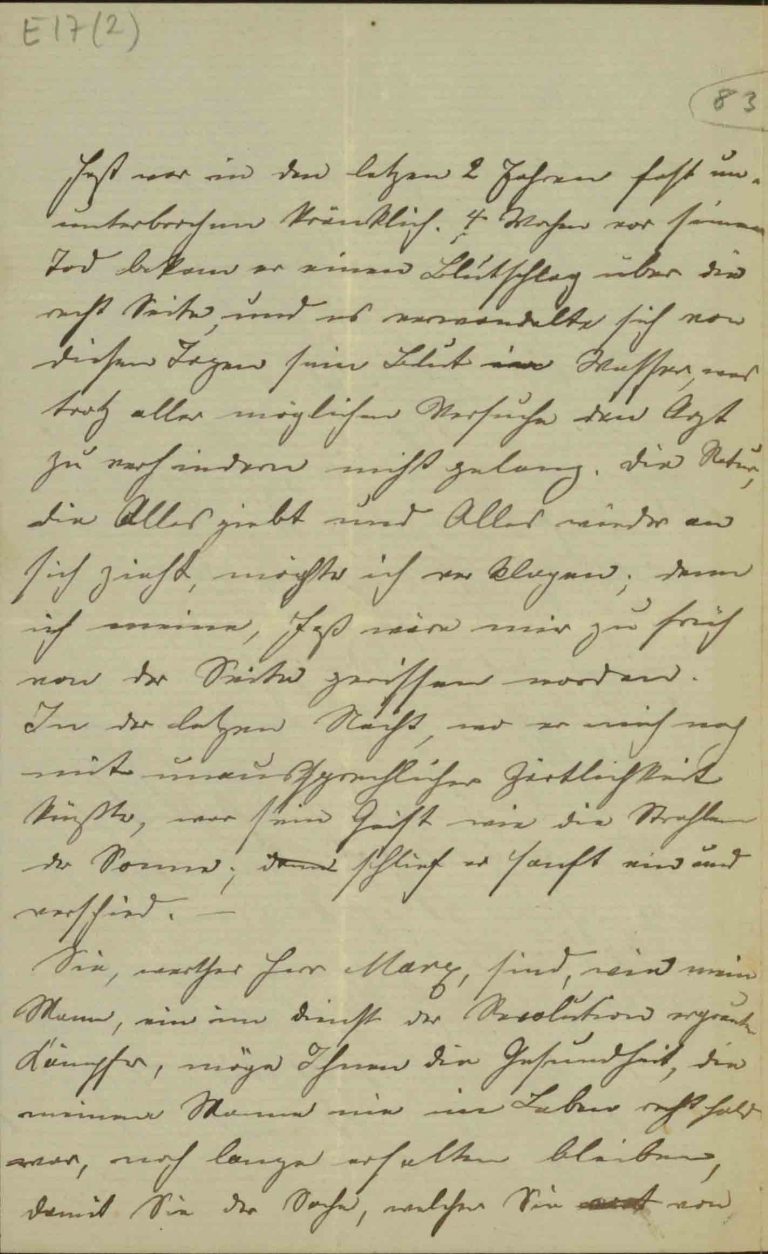 E 17 (2)
83
Heß war in den letzen 2 Jahren fast un-
unterbrochen kränklich. 4 Wochen vor seinem
Tod bekam er einen Blutschlag über die
recht Seite, und es verwandelte sich von
diesen Tagen sein Blut in Wasser, was
trotz aller möglichen Versuche den Arzt
zu verhindern nicht gelang. Die Natur,
die Alles giebt und Alles wieder an
sich zieht, möchte ich verklagen; denn
ich meine, Heß wäre mir zu früh
von der Seite gerissen worden.
In der letzen Nacht, wo er mich noch
mit unaussprechlicher Zärtlichkeit
küßte, war sein Geist wie die Strahlen
der Sonne; dann schlief er sanft ein und
verschied. —
Sie, werther Herr Marx, sind, wie mein
Mann, ein im dienst der Revolution ergrauter
Kämpfer, möge Ihnen die Gesundheit, die
meinem Manne nie im Leben recht hold
war, noch lange erhalten bleiben,
damit Sie der Sache, welcher Sie von